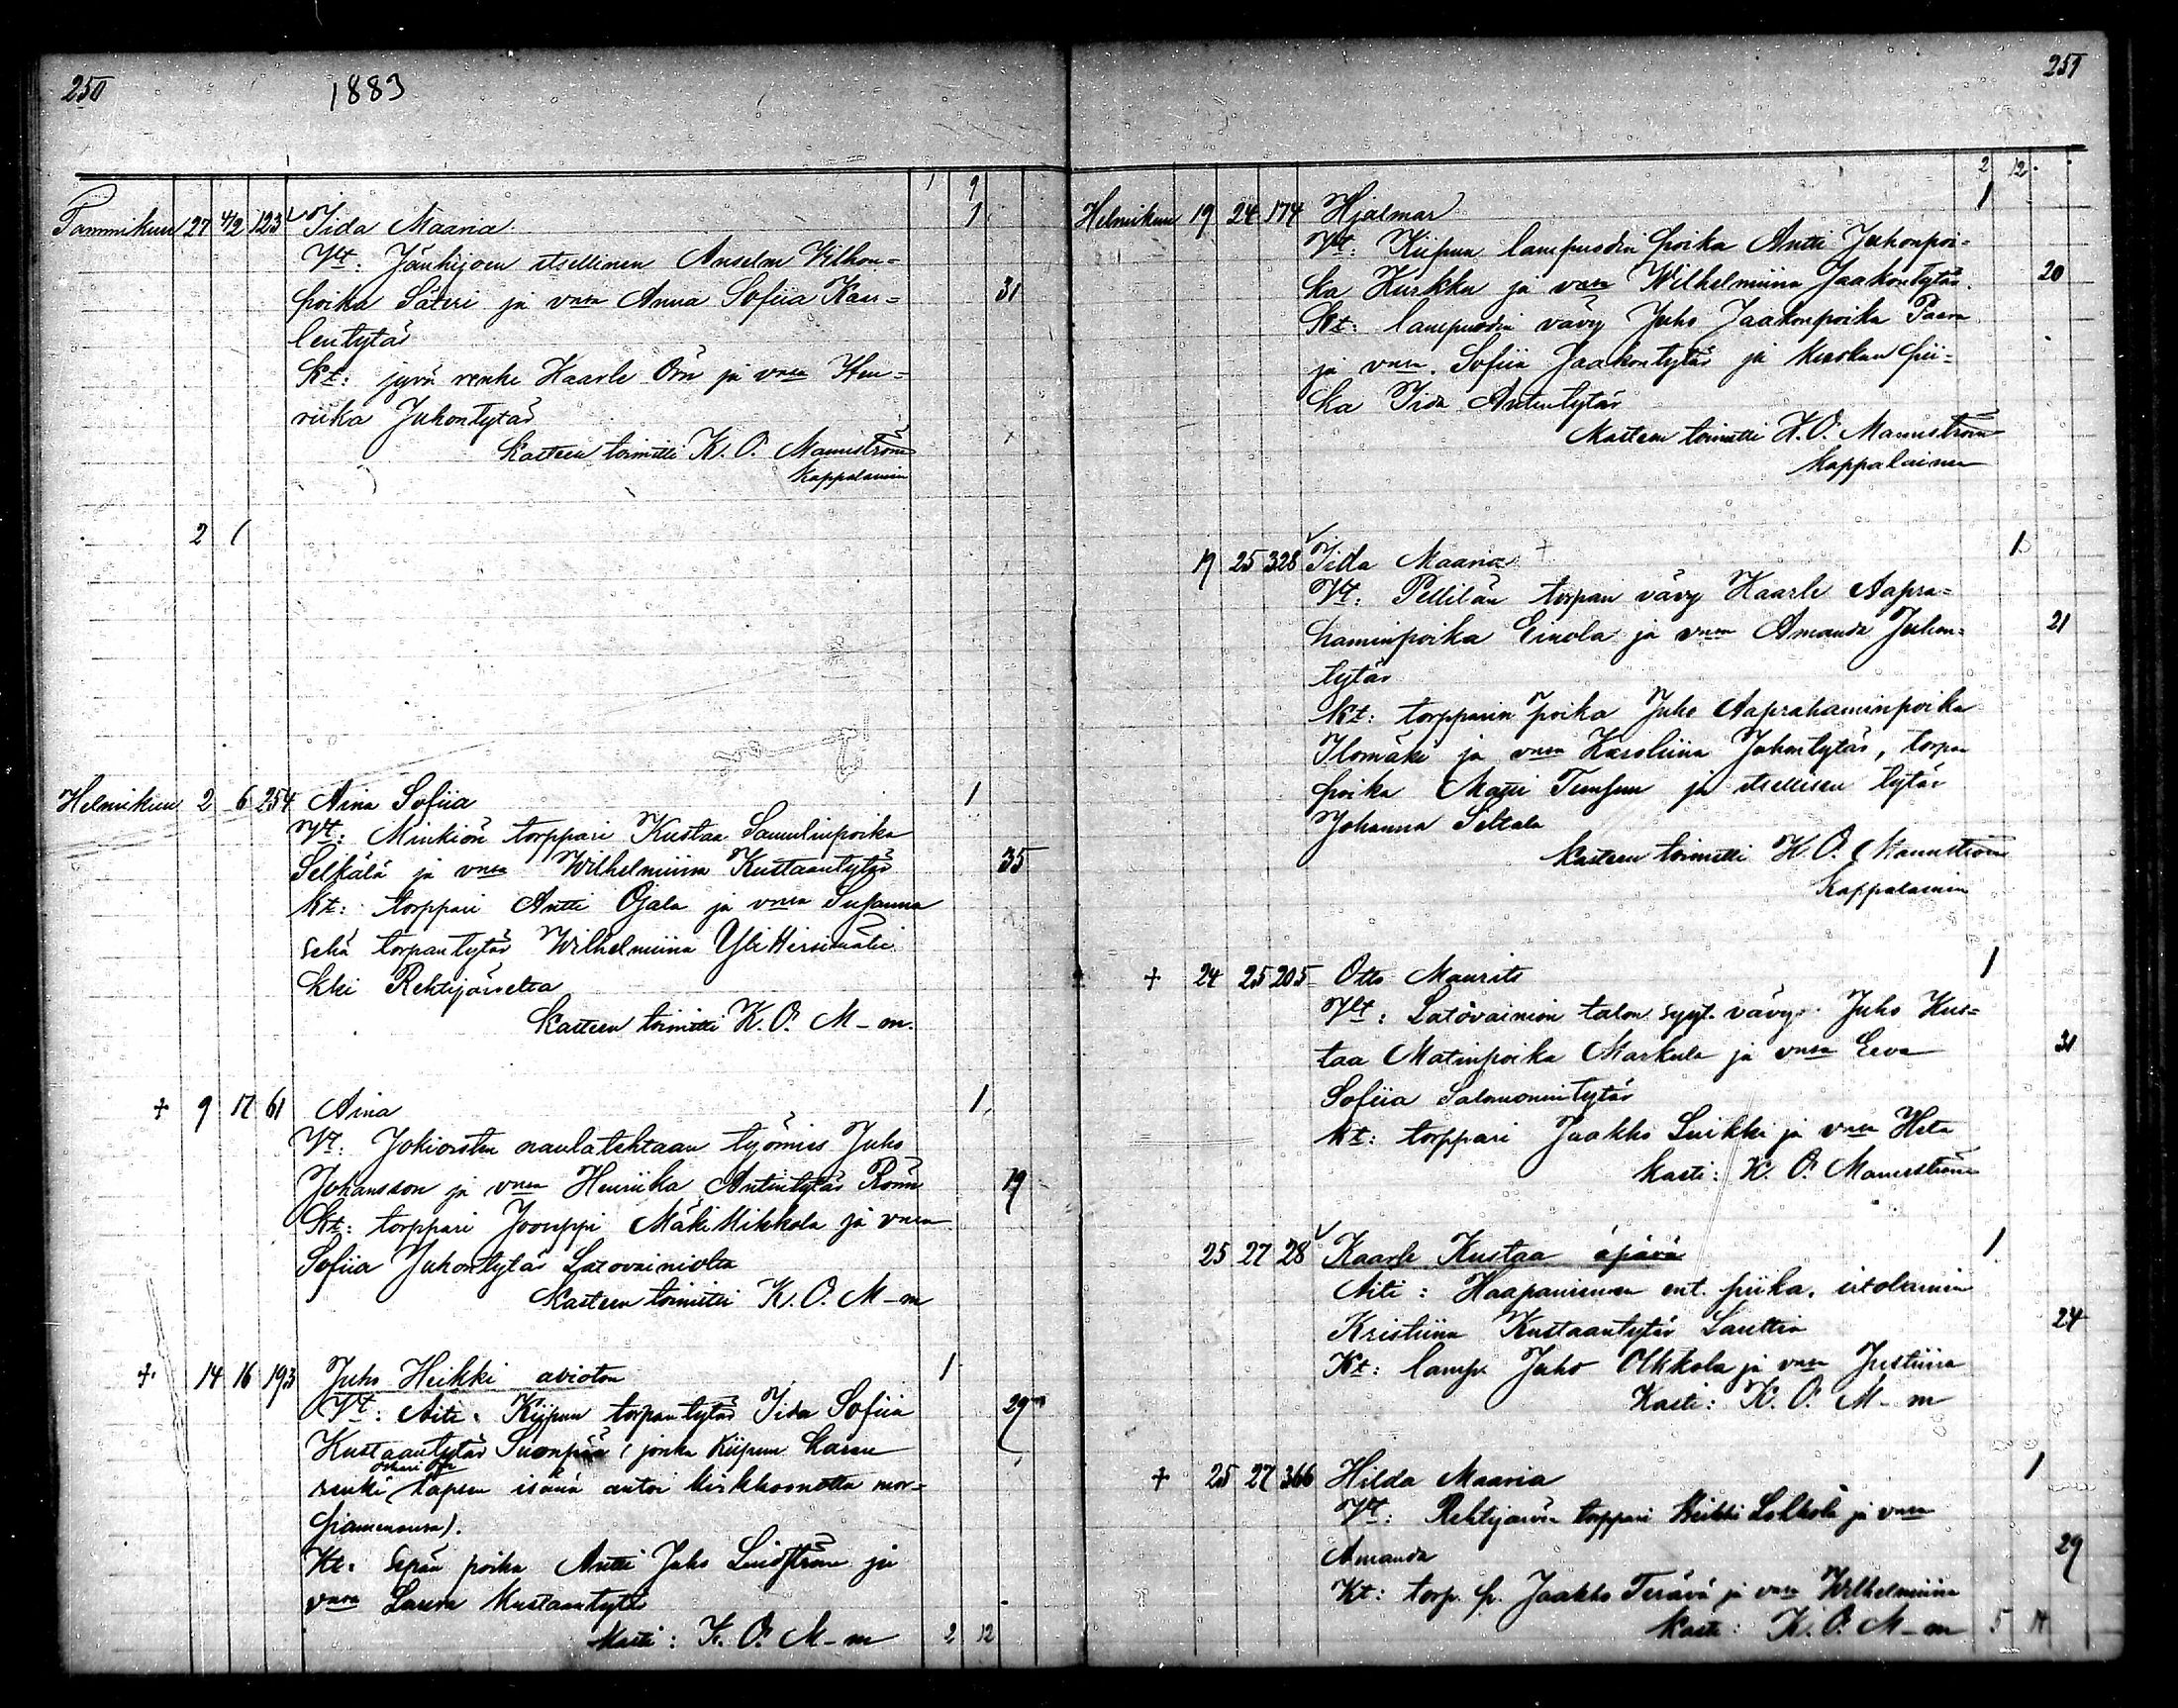 250
1883
1 9
Tammikuu 27 4/2 123 Iida Maaria 1
Vt: Jänhijoen itsellinen Anselm Vilhon=
poika Säteri ja vmsa Anna Sofiia Kaar= 31
lentytär
Kt: jyvä renki Kaarle Örn ja vmsa Hen=
riika Juhontytär
Kasteen toimitti K. O. Mannström
Kappalainen
2 1
Helmikuu 2 6 254 Aina Sofiia 1
Vt: Minkiön torppari Kustaa Samulinpoika
Selkälä ja vmsa Wilhelmiina Kustaantytär 35
Kt: torppari Antti Ojala ja vmsa Susanna
sekä torpantytär Wilhelmiina Yli Hirsimäki
kki Rehtijärveltä
Kasteen toimitti K. O. M-m.
+ 9 17 61 Aina 1
Vt: Jokioisten naulatehtaan työmies Juho
Johansson ja vmsa Henriika Antintytär Rönn 19
Kt: torppari Jooseppi Mäki Mikkola ja vmsa
Sofiia Juhontytär Latovainiolta
Kasteen toimitti K. O. M-m
+ 14 16 193 Juho Heikki avioton 1
Vt: Äiti: Kiipun torpantytär Iida Sofiia 29
Kustaantytär Suonpää (jonka Kiipun
renki lapsen isänä antoi kirkkoonottaa
Kt: Sepän poika Antti Juho Lindström ja
vmsa Kustaantytär
Kasti: K. O. M-m 2 12
251
2 12
Helmikuu 19 24 174 Hjalmar 1
Vt: Kiipun lampuodin poika Antti Juhonpoi=
ka Kurkku ja vmsa Wilhelmiina Jaakontytär. 20
Kt: lampuodin vävy Juho Jaakonpoika
ja vmsa. Sofiia Jaakontytär ja pii=
ka Iida Antintytär
Kasteen toimitti K. O. Mannström
Kappalainen
19 25 328 Iida Maaria + 1
Vt: Pellilän torpan vävy Kaarle Aapra=
haminpoika Einola ja vmsa Amanda Juhon= 21
tytär
Kt: torpparin poika Juho Aaprahaminpoika
Ilomäki ja vmsa Karoliina Juhontytär, torpan
poika Matti ja itsellisen tytär
Johanna
Kasteen toimitti K. O. Mannström
Kappalainen
+ 24 25 205 Otto Maurits 1
Vt: Latovainion talon syyt. vävy Juho Kus=
taa Matinpoika Markula ja vmsa Eeva 31
Sofiia Salomonintytär
Kt: torppari Jaakko Luikki ja vmsa Heta
Kasti: K. O. Mannström
25 27 28 Kaarle Kustaa äpärä 1
Äiti: Haapaniemen ent. piika, itsellinen
Kristiina Kustaantytär Lauttia 24
Kt: lamp. Juho Ollkkola ja vmsa Justiina
Kasti: K. O. M-m
+ 25 27 366 Hilda Maaria 1
Vt: Rehtijärven torppari Heikki Lokkola ja vmsa
Amanda 29
Kt: torp. p. Jaakko Terävä ja vmsa Wilhelmiina
Kasti: K. O. M-m 5 14